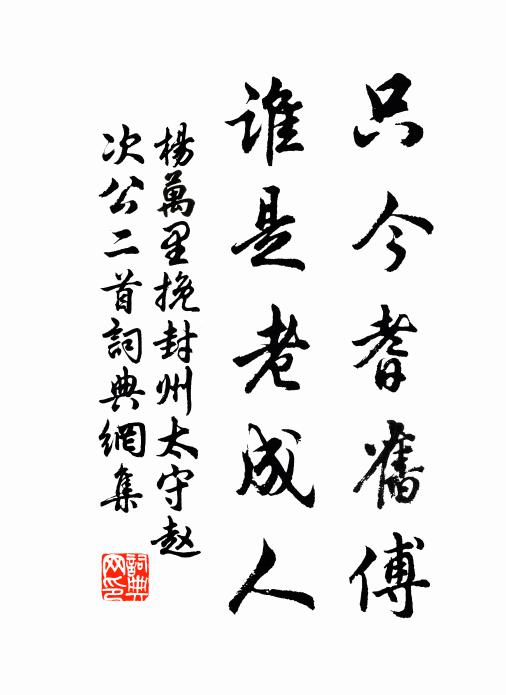 只今耆舊傅
誰是老成人
楊萬里挽封州太守赵
次公二首詞典網集
詞典
网印